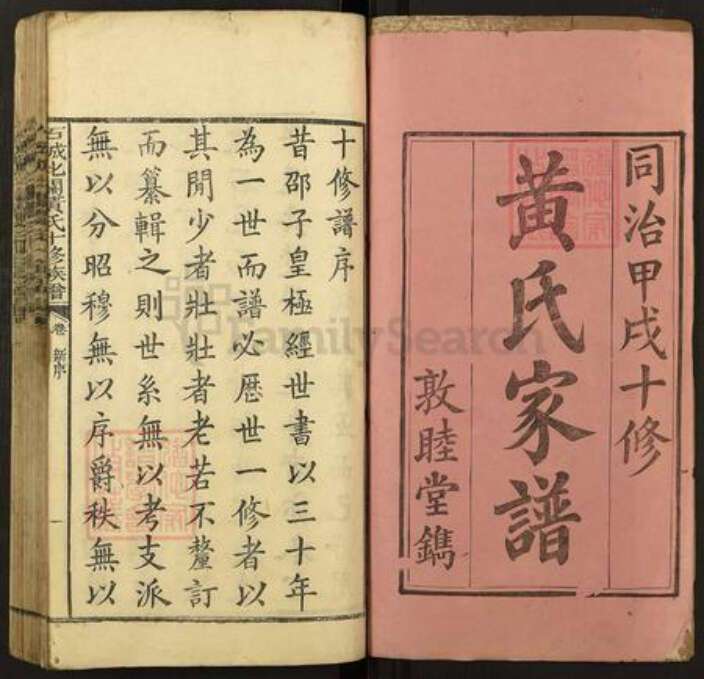 同治甲戌十修
黃氏家譜
敦睦堂鐫
十修譜序
昔邵子皇極經世書以三十年
為一世而譜必歷世一修者以
其閒少者壯壯者老若不釐訂
而纂輯之則世系無以考支派
無以分昭穆無以序爵秩無以
石城北關黃氏十修族譜
卷
新序
一
FamilySearch